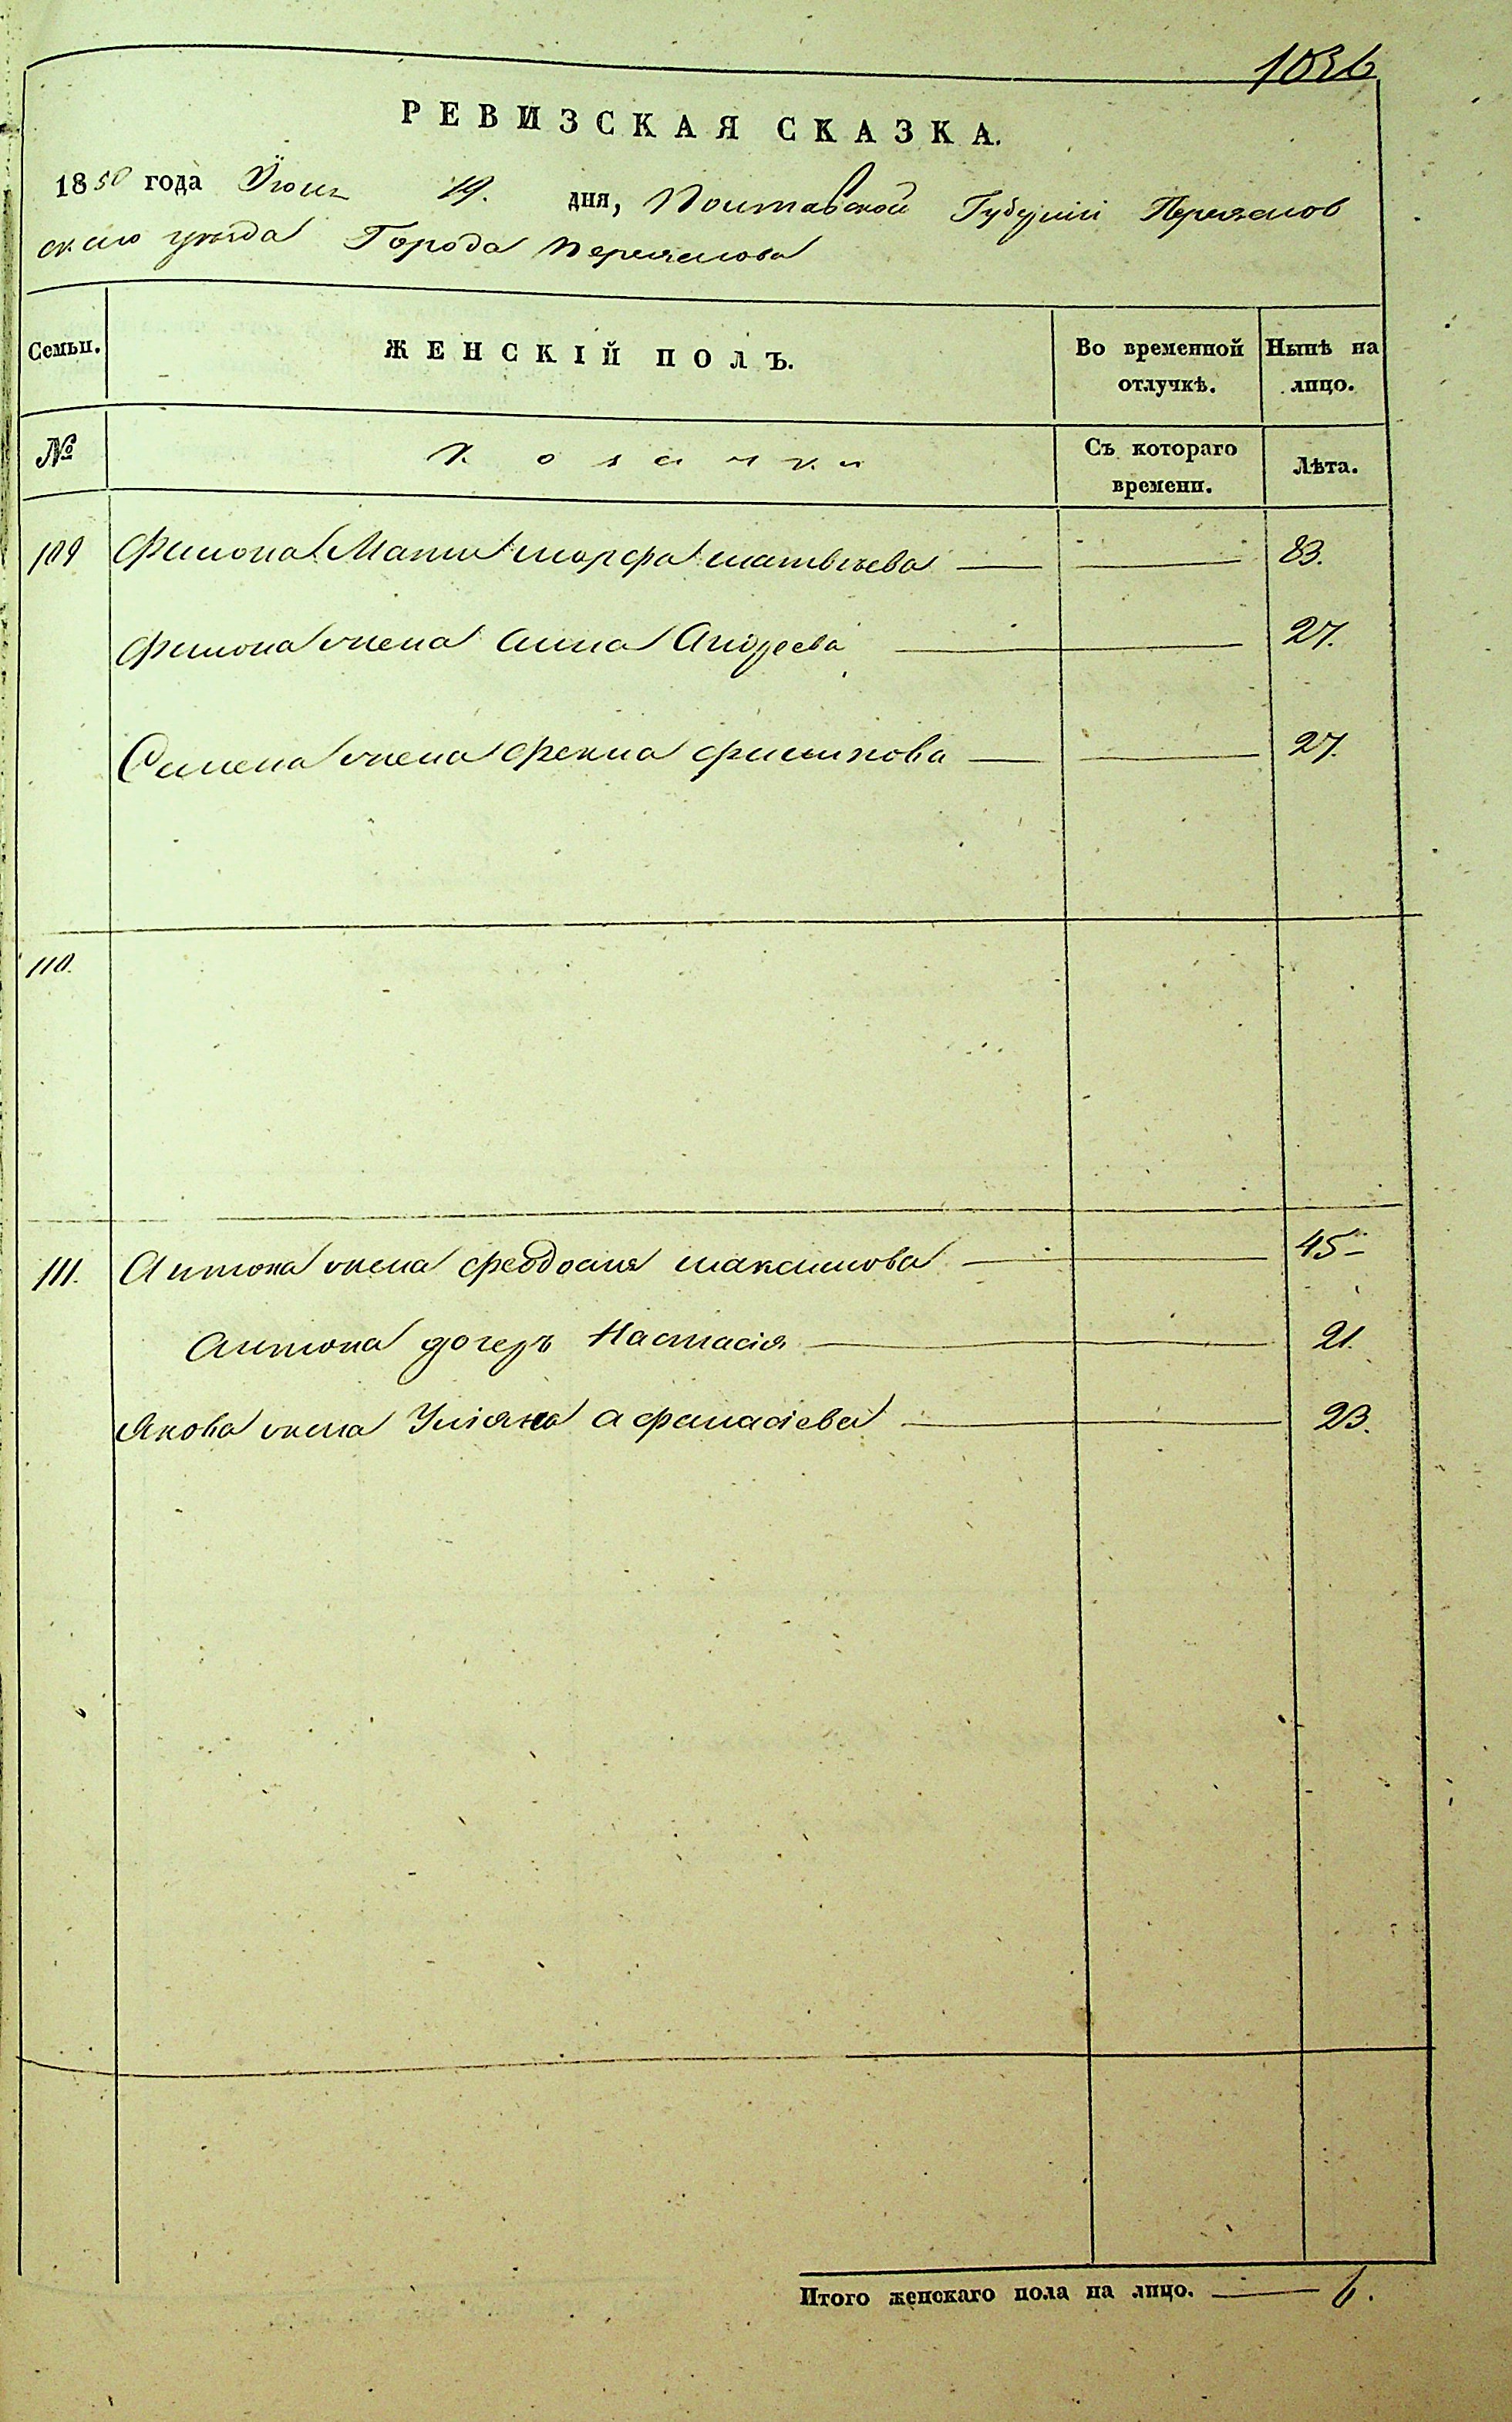 1036
РЕВИЗСКАЯ СКАЗКА.
1850 года Июня 19. дня, Полтавской Губерніи Переяслов
скаго уезда Города Переяслова
Семьи. ЖЕНСКІЙ ПОЛЪ. Во временной отлучкѣ. Нынѣ на лицо.
№ Козачки Съ котораго времени. Лѣта.
109 Филона Мать Марфа Матвѣева 83.
Филона жена Анна Андреева 27.
Семена жена Фекла Филипова 27.
110.
111. Антона жена Феодосия Максимова 45
Антона дочерь Настасія 21.
Якова жена Уліяна Афанасіева 23.
Итого женскаго пола на лицо. 6.